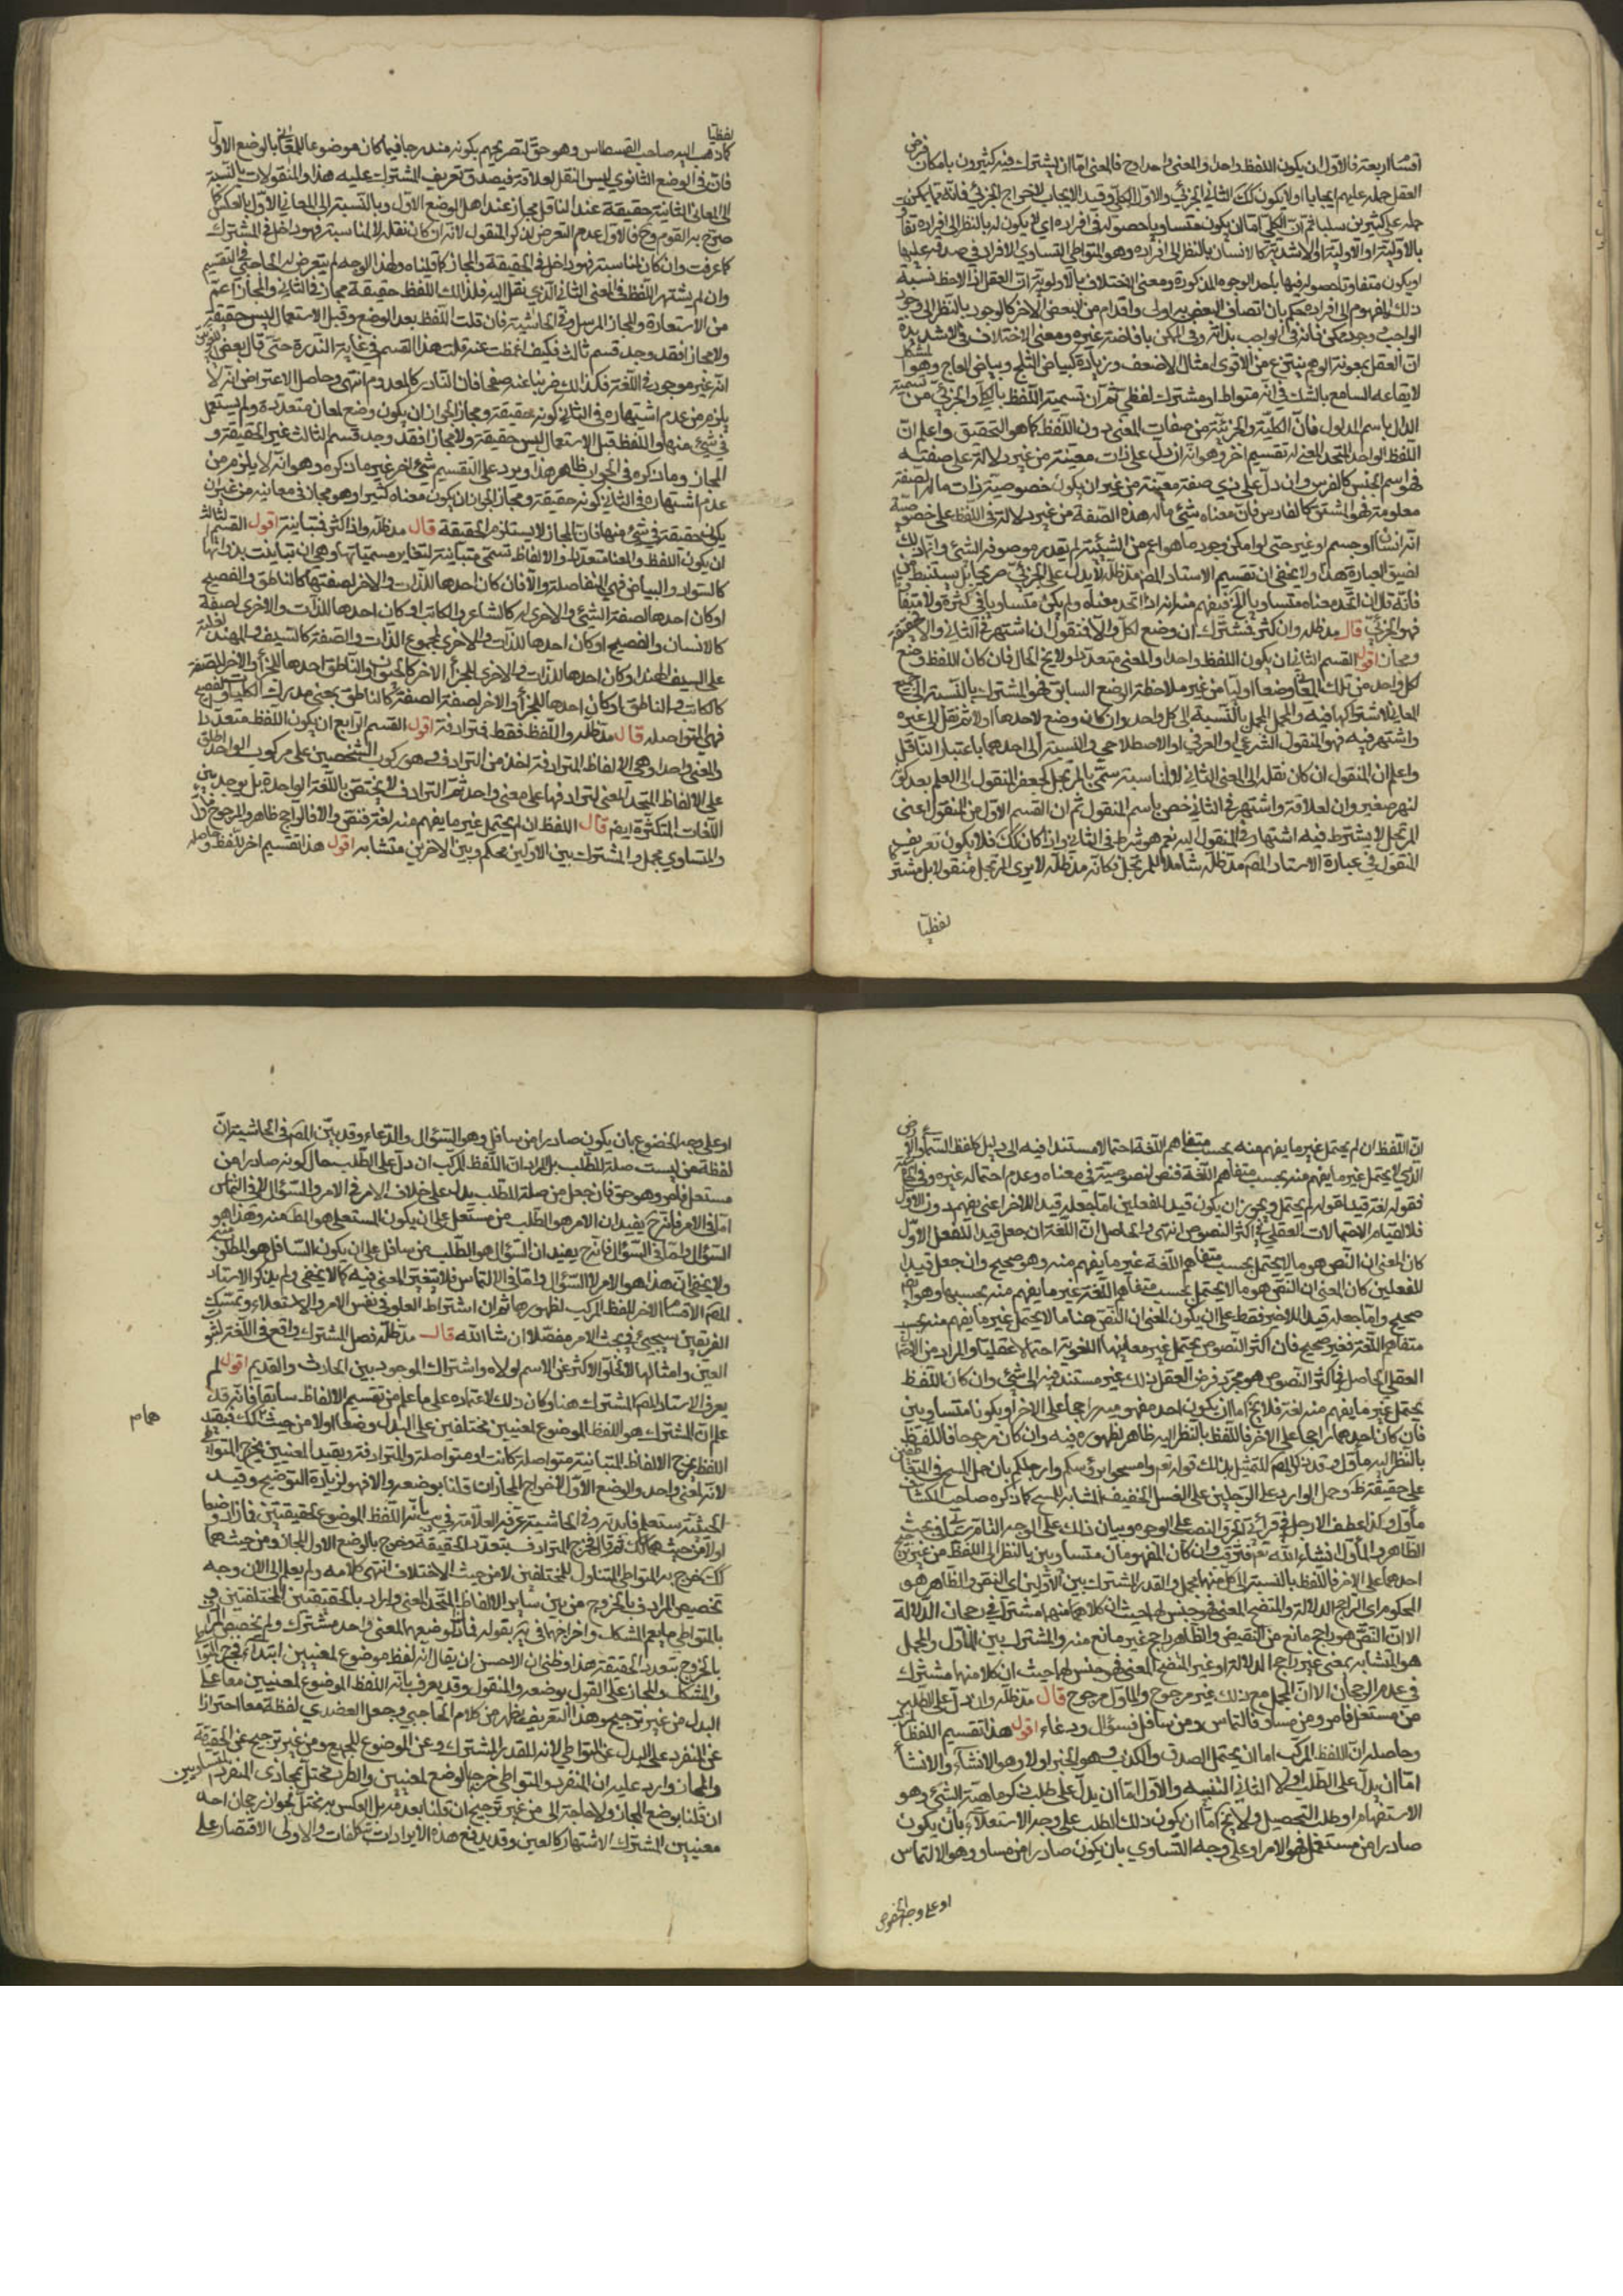 اقسام اربعة فالاول ان يكون اللفظ واحدا والمعنى واحدا وح فالمعنى اما ان يشترك فيه كثيرون بامكان فرض
العقل حمله عليهم ايجابا اولا يكون كك الثاني الجزئي والاول الكلي وقيد الايجاب لاخراج الجزئي فانه مما يمكن
حمله على كثيرين سلبا ثم ان الكلي اما ان يكون متساويا حصوله في افراده اي لا يكون له بالنظر الى افراده تفاوت
بالاولية او الاولوية او الاشدية كالانسان بالنظر الى افراده وهو المتواطي لتساوي الافراد في صدقه عليها
او يكون متفاوتا حصوله فيها باحد الوجوه المذكورة ومعنى الاختلاف بالاولوية ان العقل اذا لاحظ نسبة
ذلك المفهوم الى افراده حكم بان اتصاف البعض به اولى واقدم من البعض الاخر كالوجود بالنظر الى وجود
الواجب ووجود الممكن فانه في الواجب بذاته وفي الممكن بافاضة غيره ومعنى الاختلاف في الاشدية
ان العقل بمعونة الوهم ينتزع من الاقوى امثال الاضعف وزيادة كبياض الثلج وبياض العاج وهو المشكك
لايقاعه السامع بالشك في انه متواطا او مشترك لفظي ثم ان تسمية اللفظ بالكلي والجزئي من تسمية
الدال باسم المدلول فان الكلية والجزئية من صفات المعنى دون اللفظ كما هو التحقيق واعلم ان
اللفظ الواحد المتحد المعنى له تقسيم اخر وهو انه ان دل على ذات معينة من غير دلالة على صفته
فهو اسم الجنس كالفرس وان دل على ذي صفة معينة من غير ان يكون خصوصية ذات ماله الصفة
معلومة فهو المشتق كالفارس فان معناه شئ ماله هذه الصفة من غير دلالة في اللفظ على خصوصية
انه انسان او جسم او غير حتى لو امكن وجود ما هو اعم من الشيئية لم يقدر موصوفه الشئ وانما ذلك
لضيق العبارة هذا ولا يخفى ان تقسيم الاستاد المص مد ظله لا يدل على الجزئي صريحا بل يستنبط
فانه قال ان اتحد معناه متساويا الخ فيفهم منه انه اذا اتحد معناه ولم يكن متساويا في كثرة ولا متفاوتا
فهو الجزئي قال مد ظله وان كثر فمشترك ان وضع لكل والا فمنقول ان اشتهر في الثاني والا فحقيقة
ومجاز اقول القسم الثاني ان يكون اللفظ واحدا والمعنى متعددا ولا يخ الحال فان كان اللفظ وضع
لكل واحد من تلك المعاني وضعا اوليا من غير ملاحظة الوضع السابق فهو المشترك بالنسبة الى جميع
المعاني لاشتراكها فيه والمجمل بالنسبة الى كل واحد وان كان وضع لاحدها اولا ثم نقل الى غيره
واشتهر فيه فهو المنقول الشرعي والعرفي او الاصطلاحي والنسبة الى احدهما باعتبار الناقل
واعلم ان المنقول ان كان نقله الى المعنى الثاني لا لمناسبة سمي بالمرتجل كجعفر المنقول الى العلم بعد كونه
لنهر صغير وان لعلاقة واشتهر في الثاني خص باسم المنقول ثم ان القسم الاول من المنقول اعني
المرتجل لا يشترط فيه اشتهاره في المنقول اليه نعم هو شرط في الثاني واذا كان كك فلا يكون تعريف
المنقول في عبارة الاستاد المص مد ظله شاملا للمرتجل فكانه مد ظله لا يرى المرتجل منقولا بل مشتركا
لفظيا
لفظيا
كما ذهب اليه صاحب القسطاس وهو حق لتصريحهم بكونه مندرجا فيما كان موضوعا للمعاني بالوضع الاول
فان في الوضع الثانوي ليس النقل لعلاقة فيصدق تعريف المشترك عليه هذا والمنقولات بالنسبة
الى المعاني الثانية حقيقة عند الناقل مجاز عند اهل الوضع الاول وبالنسبة الى المعاني الاول بالعكس كما
صرح به القوم وح فالاولى عدم التعرض لذكر المنقول لانه ان كان نقله لا لمناسبة فهو داخل في المشترك
كما عرفت وان كان لمناسبة فهو داخل في الحقيقة والمجاز كما قلناه ولهذا الوجه لم يتعرض له الحاجبي في التقسيم
وان لم يشتهر اللفظ في المعنى الثاني الذي نقل اليه فذلك اللفظ حقيقة مجاز في الثاني والمجاز اعم
من الاستعارة والمجاز المرسل وفي الحاشية فان قلت اللفظ بعد الوضع وقبل الاستعمال ليس حقيقة
ولا مجازا فقد وجد قسم ثالث فكيف اغمضت عنه قلت هذا القسم في غاية الندرة حتى قال بعض
انه غير موجود في اللغة فكذلك ضربنا عنه صفحا فان النادر كالمعدوم انتهى وحاصل الاعتراض انه لا
يلزم من عدم اشتهاره في الثاني كونه حقيقة ومجازا لجواز ان يكون وضع لمعان متعددة ولم يستعمل
في شئ منها واللفظ قبل الاستعمال ليس حقيقة ولا مجازا فقد وجد قسم ثالث غير الحقيقة و
المجاز وما ذكره في الجواب ظاهر هذا ويرد على التقسيم شئ اخر غير ما ذكره وهو انه لا يلزم من
عدم اشتهاره في الثاني كونه حقيقة ومجازا لجواز ان يكون معناه كثيرا وهو مجاز في معانيه من غير ان
يكون حقيقة في شئ منها فان المجاز لا يستلزم الحقيقة قال مد ظله واذا كثر فمتباينة اقول القسم الثالث
ان يكون اللفظ والمعنى متعددا والالفاظ تسمى متباينة لتغاير مسمياتها وهي ان تباينت بذواتها
كالسواد والبياض فهي المتفاصلة والا فان كان احدها للذات والاخر لصفتها كالناطق والفصيح
او كان احدها لصفة الشئ والاخرى له كالشاعر والكاتب او كان احدها للذات والاخرى لصفة
كالانسان والفصيح او كان احدها للذات والاخرى لمجموع الذات والصفة كالسيف والمهند
على السيف الهندا او كان احدها للذات والاخرى للجزأ الاخر كالحيوان والناطق احدها للجزأ والاخر للصفة
كالكاتب والناطق او كان احدها للجزأ والاخر لصفة الصفة كالناطق بمعنى مدرك الكليات والفصيح
فهي المتواصلة قال مد ظله واللفظ فقط فمترادفة اقول القسم الرابع ان يكون اللفظ متعددا
والمعنى واحدا وهي الالفاظ المترادفة اخذ من الترادف وهو ركوب الشخصين على مركوب الواحد اطلق
على الالفاظ المتحد المعنى لترادفها على معنى واحد ثم الترادف لا يختص باللغة الواحدة بل يوجد بين
اللغات المتكثرة ايض قال اللفظ ان لم يحتمل غير ما يفهم منه لغة فنص والا فالراجح ظاهر والمرجوح
والمتساوي مجمل والمشترك بين الاولين محكم وبين الاخرين متشابه اقول هذا تقسيم اخر للفظ وحاصله
ان اللفظ ان لم يحتمل غير ما يفهم منه بحسب متفاهم اللغة احتمالا مستندا فيه الى دليل كلفظ السماء والارض
الذي لا يحتمل غير ما يفهم منه بحسب متفاهم اللغة فنص لنصوصيته في معناه وعدم احتماله غيره وفي
فقوله لغة قيد لقوله لم يحتمل ويجوز ان يكون قيد للفعلين اما جعله قيدا للاخر اعني يفهم دون الاول
فلا لقيام الاحتمالات العقلي في اكثر النصوص انتهى والحاصل ان اللغة ان جعل قيدا للفعل الاول
كان المعنى ان النص هو ما لا يحتمل بحسب متفاهم اللغة غير ما يفهم منه وهو صحيح وان جعل قيدا
للفعلين كان المعنى ان النص هو ما لا يحتمل بحسب متفاهم اللغة غير ما يفهم منه بحسبها وهو ايض
صحيح واما جعله قيد للاخير فقط على ان يكون المعنى ان النص هنا ما لا يحتمل غير ما يفهم منه بحسب
متفاهم اللغة فغير صحيح فان اكثر النصوص يحتمل غير معانيها اللغوية احتمالا عقليا والمراد من
العقلي الحاصل في اكثر النصوص هو مجرد فرض العقل ذلك غير مستند فيه الى شئ وان كان اللفظ
يحتمل غير ما يفهم منه لغة فلا يخ اما ان يكون احد مفهوميه راجحا على الاخر او يكونا متساويين
فان كان احدهما راجحا على الاخر فاللفظ بالنظر اليه ظاهر لظهوره فيه وان كان مرجوحا فاللفظ
بالنظر اليه مأول وقد ذكر المص للتمثيل بذلك قوله تع وامسحوا برؤسكم وارجلكم بان حمل المسح في
على حقيقة وحمل الوارد على الرجلين على الغسل الخفيف المشابه للمسح كما ذكره صاحب الكشاف
مأول وكذا عطف الارجل في قرائتي الجر والنصب على الوجوه وبيان ذلك على الوجه التام سيأتي في بحث
الظاهر والمأول انشاء الله تع وان كان المفهومان متساويين بالنظر الى اللفظ من غير ترجيح
احدها على الاخر فاللفظ بالنسبة الى كل منهما مجمل والقدر المشترك بين الاولين اي النص والظاهر هو
المحكم اي الراجح الدلالة والمتضح المعنى فهو جنس لهما حيث ان كلاهما منهما مشترك في رجحان الدلالة
الا ان النص هو راجح مانع من النقيض والظاهر راجح غير مانع منه والمشترك بين المأول والمجمل
هو المتشابه بمعنى غير راجح الدلالة او غير المتضح المعنى فهو جنس لهما حيث ان كلا منهما مشترك
في عدم الرجحان الا ان المجمل مع ذلك غير مرجوح والمأول مرجوح قال مد ظله وان دل على الطلب
من مستعل فامر ومن مساو فالتماس ومن سافل فسؤال ودعاء اقول هذا تقسيم اللفظ المركب
وحاصله ان اللفظ المركب اما ان يحتمل الصدق والكذب وهو الخبر اولا وهو الانشاء والانشأ
اما ان يدل على الطلب اولا الثاني التنبيه والاول اما ان يدل على طلب ذكر ماهية الشئ وهو
الاستفهام او طلب التحصيل ولا يخ اما ان يكون ذلك الطلب على وجه الاستعلاء بأن يكون
صادرا من مستعل فهو الامر او على وجه التساوي بان يكون صادرا من مساو وهو الالتماس
او على وجه الخضوع
او على وجه الخضوع بان يكون صادرا من سافل وهو السؤال والدعاء وقد بين المص في الحاشية ان
لفظة من ليست صلة للطلب بل المراد ان اللفظ المركب ان دل على الطلب حال كونه صادرا من
مستعل فامر وهو حق فان جعل من صلة للطلب يدل على خلاف الامر في الامر والسؤال لا في التماس
اما في الامر فانه ح يفيد ان الامر هو الطلب من مستعل على ان يكون المستعلي هو المط منه وهذا هو
السؤال واما في السؤال فانه ح يفيد ان السؤال هو الطلب من سافل على ان يكون السافل هو المطلوب منه
ولا يخفى ان هذا هو الامر لا السؤال واما في الالتماس فلا يتغير المعنى فيه كما لا يخفى ولم يذكر الاستاد
المص الاقسام الاخر للفظ المركب لظهورها ثم ان اشتراط العلو في نفس الامر والاستعلاء وتمسك
الفريقين سيجيئ في بحث الامر مفصلا ان شاء الله قال مد ظله فصل المشترك واقع في اللغة لنحو
العين وامثالها لا لخلو الاكثر عن الاسم لولاه واشتراك الموجود بين الحادث والقديم اقول لم
يعرف الاستاد المص المشترك هنا وكان ذلك لاعتماده على ما علم من تقسيم الالفاظ سابقا فانه قد
علم ان المشترك هو اللفظ الموضوع لمعنيين مختلفين على البدل وضعا اولا من حيث كك فبقيد
همام
اللفظ يخرج الالفاظ المتباينة متواصلة كانت او متفاصلة والمترادفة وبقيد المعنيين يخرج المتواطي
لانه لمعنى واحد والوضع الاول لاخراج المجازات ان قلنا بوضعه والا فهو لزيادة التوضيح وقيد
الحيثية ستعلم فايدته وفي الحاشية عرفه العلامة في يه بأنه اللفظ الموضوع لحقيقتين فازاد وضعا
اولا من حيث هما كك ثم قال فخرج المترادف بتعدد الحقيقة وخرج بالوضع الاول المجاز ومن حيث هما
كك خرج به المتواطي المتناول للمختلفين لا من حيث الاختلاف انتهى كلامه ولم يعلم الى الان وجه
تخصيص المرادف بالخروج من بين سائر الالفاظ المتحد المعنى وايراد بالحقيقتين المختلفتين وفي
بالمتواطي ما يعم المشكك واخراجهما في يه بقوله فانا وضعهما لمعنى واحد مشترك ولم يخصص المرادف
بالخروج بتعدد الحقيقة هذا وظني ان الاحسن ان يقال انه لفظ موضوع لمعنيين ابتداء فخرج المتواطي
والمشكك والمجاز على القول بوضعه والمنقول وقد يعرف بانه اللفظ الموضوع لمعنيين معا على
البدل من غير ترجيح وهذا التعريف يظهر من كلام الحاجبي وجعل العضدي لفظة معا احترازا
عن المنفرد على البدل عن المتواطي لانه للقدر المشترك وعن الموضوع للجميع ومن غير ترجيح عن الحقيقة
والمجاز واورد عليه ان المنفرد والمتواطي خرجا بالوضع لمعنيين والطرد مختل بمجازي المنفرد متساويين
ان قلنا بوضع المجاز ولا حاجة الى من غير ترجيح ان قلنا بعدمه بل العكس به مختل لجواز رجحان احد
معنيين المشترك لاشتهاره كالعين وقد يدفع هذه الايرادات بتكلفات والاولى الاقتصار على